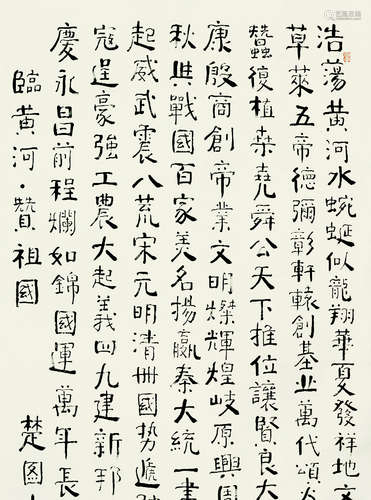 浩蕩黃河水蜿蜒似龍翔華夏發祥地
草萊五帝德彌彰軒轅創基业萬代頌
蠶復植桑堯舜公天下推位讓賢良大
康殷商創帝業文明燦輝煌岐原興周
秋與戰國百家美名揚嬴秦大統一書
起威武震八荒宋元明清國勢遞
寇逞豪強工農大起義四九建新邦
慶永昌前程爛如錦國運萬年長
臨黃河·贊祖國 楚图